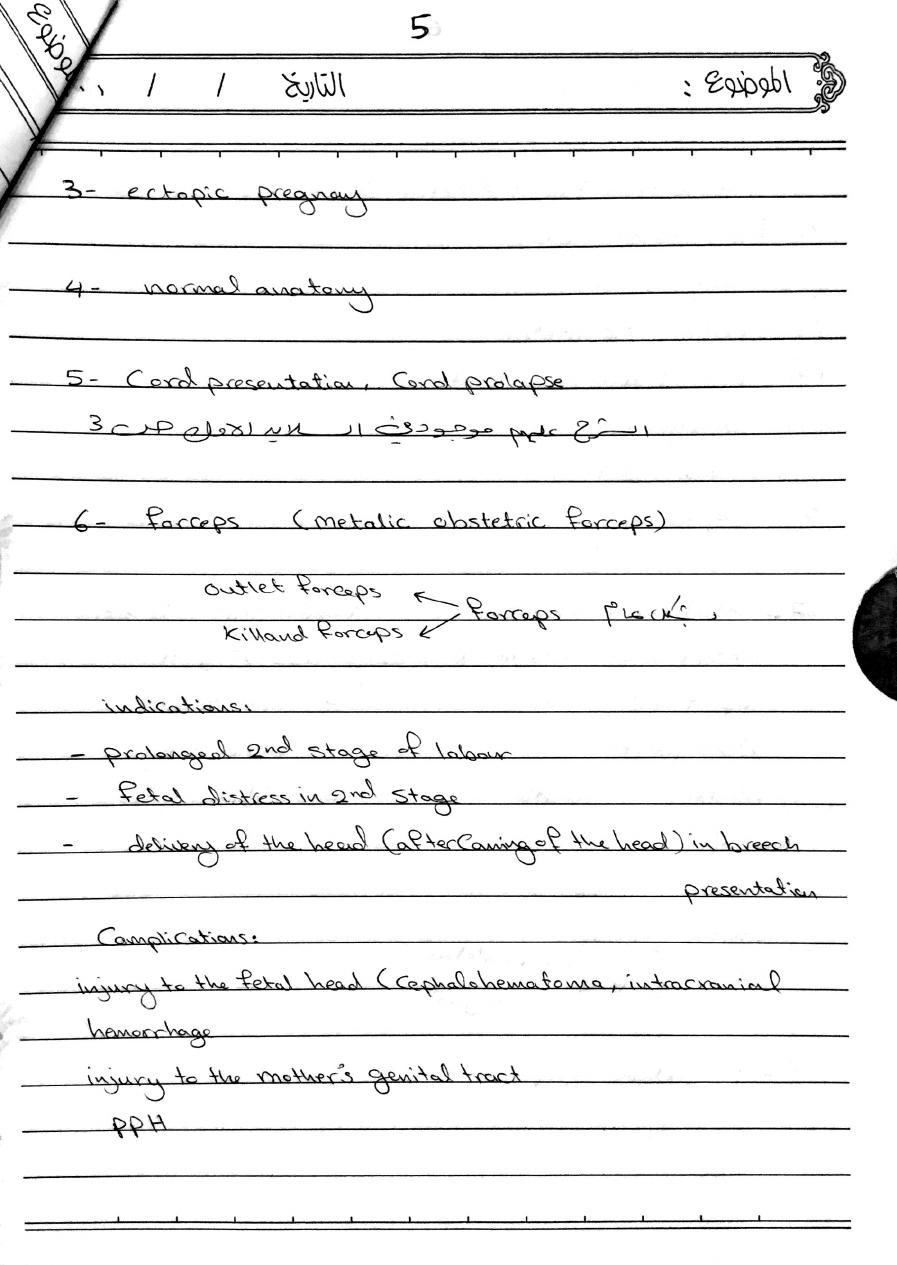 5
الموضوع : التاريخ / /
الموضوع
3- ectopic pregnay
4- normal anatomy
5- Cord presentation, Cord prolapse
الشرح عليهم موجود في السلايد الاول صــ 3
6- forceps (metalic obstetric forceps)
outlet forceps
بشكل عام forceps
Killand forceps
indications:
- prolonged 2nd stage of labour
- fetal distress in 2nd stage
- delivery of the head (after Coming of the head) in breech
presentation
Complications:
injury to the fetal head (Cephalohematoma, intracranial
hemorrhage
injury to the mother's genital tract
PPH